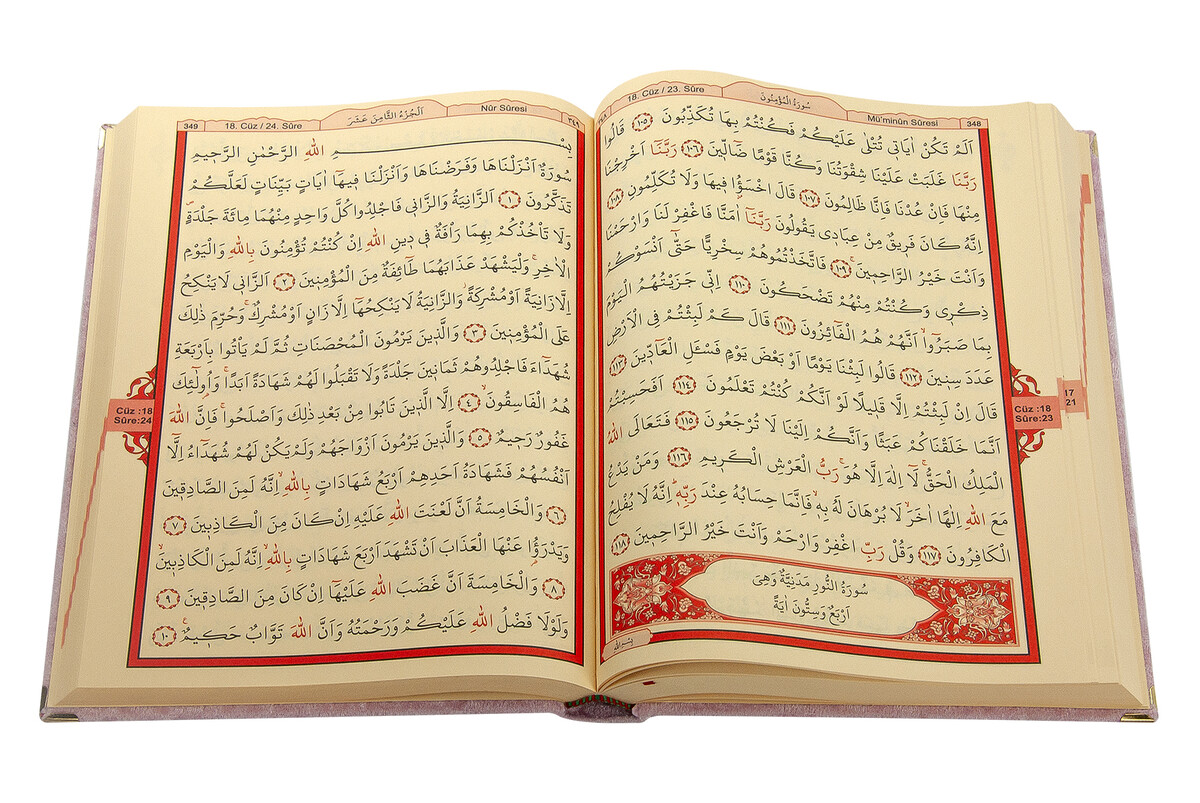 348
Mü'minûn Sûresi
سُورَةُ الْمُؤْمِنُونَ
18. Cüz / 23. Sûre
اَلَمْ تَكُنْ اٰيَاتٖى تُتْلٰى عَلَيْكُمْ فَكُنْتُمْ بِهَا تُكَذِّبُونَ ﴿١٠٥﴾ قَالُوا
رَبَّنَا غَلَبَتْ عَلَيْنَا شِقْوَتُنَا وَكُنَّا قَوْمًا ضَٓالّٖينَ ﴿١٠٦﴾ رَبَّنَٓا اَخْرِجْنَا
مِنْهَا فَاِنْ عُدْنَا فَاِنَّا ظَالِمُونَ ﴿١٠٧﴾ قَالَ اخْسَؤُ۫ا فٖيهَا وَلَا تُكَلِّمُونِ ﴿١٠٨﴾
اِنَّهُ كَانَ فَرٖيقٌ مِنْ عِبَادٖى يَقُولُونَ رَبَّنَٓا اٰمَنَّا فَاغْفِرْ لَنَا وَارْحَمْنَا
وَاَنْتَ خَيْرُ الرَّاحِمٖينَۚ ﴿١٠٩﴾ فَاتَّخَذْتُمُوهُمْ سِخْرِيًّا حَتّٰٓى اَنْسَوْكُمْ
ذِكْرٖى وَكُنْتُمْ مِنْهُمْ تَضْحَكُونَ ﴿١١٠﴾ اِنّٖى جَزَيْتُهُمُ الْيَوْمَ
بِمَا صَبَرُٓواۙ اَنَّهُمْ هُمُ الْفَٓائِزُونَ ﴿١١١﴾ قَالَ كَمْ لَبِثْتُمْ فِى الْاَرْضِ
عَدَدَ سِنٖينَ ﴿١١٢﴾ قَالُوا لَبِثْنَا يَوْمًا اَوْ بَعْضَ يَوْمٍ فَسْـَٔلِ الْعَٓادّٖينَ ﴿١١٣﴾
قَالَ اِنْ لَبِثْتُمْ اِلَّا قَلٖيلًا لَوْ اَنَّكُمْ كُنْتُمْ تَعْلَمُونَ ﴿١١٤﴾ اَفَحَسِبْتُمْ
اَنَّمَا خَلَقْنَاكُمْ عَبَثًا وَاَنَّكُمْ اِلَيْنَا لَا تُرْجَعُونَ ﴿١١٥﴾ فَتَعَالَى اللّٰهُ
الْمَلِكُ الْحَقُّۚ لَٓا اِلٰهَ اِلَّا هُوَۚ رَبُّ الْعَرْشِ الْكَرٖيمِ ﴿١١٦﴾ وَمَنْ يَدْعُ
مَعَ اللّٰهِ اِلٰهًا اٰخَرَۙ لَا بُرْهَانَ لَهُ بِهٖۙ فَاِنَّمَا حِسَابُهُ عِنْدَ رَبِّهٖؕ اِنَّهُ لَا يُفْلِحُ
الْكَافِرُونَ ﴿١١٧﴾ وَقُلْ رَبِّ اغْفِرْ وَارْحَمْ وَاَنْتَ خَيْرُ الرَّاحِمٖينَ ﴿١١٨﴾
سُورَةُ النُّورِ مَدَنِيَّةٌ وَهِىَ
اَرْبَعٌ وَسِتُّونَ اٰيَةً
بِسْمِ اللّٰهِ
Cüz :18
Sûre:23
17
21
٣٤٩
Nûr Sûresi
اَلْجُزْءُ الثَّامِنَ عَشَرَ
18. Cüz / 24. Sûre
349
بِسْمِ اللّٰهِ الرَّحْمٰنِ الرَّحٖيمِ
سُورَةٌ اَنْزَلْنَاهَا وَفَرَضْنَاهَا وَاَنْزَلْنَا فٖيهَٓا اٰيَاتٍ بَيِّنَاتٍ لَعَلَّكُمْ
تَذَكَّرُونَ ﴿١﴾ اَلزَّانِيَةُ وَالزَّانٖى فَاجْلِدُوا كُلَّ وَاحِدٍ مِنْهُمَا مِائَةَ جَلْدَةٍۖ
وَلَا تَأْخُذْكُمْ بِهِمَا رَأْفَةٌ فٖى دٖينِ اللّٰهِ اِنْ كُنْتُمْ تُؤْمِنُونَ بِاللّٰهِ وَالْيَوْمِ
الْاٰخِرِۚ وَلْيَشْهَدْ عَذَابَهُمَا طَٓائِفَةٌ مِنَ الْمُؤْمِنٖينَ ﴿٢﴾ اَلزَّانٖى لَا يَنْكِحُ
اِلَّا زَانِيَةً اَوْ مُشْرِكَةًؗ وَالزَّانِيَةُ لَا يَنْكِحُهَٓا اِلَّا زَانٍ اَوْ مُشْرِكٌۚ وَحُرِّمَ ذٰلِكَ
عَلَى الْمُؤْمِنٖينَ ﴿٣﴾ وَالَّذٖينَ يَرْمُونَ الْمُحْصَنَاتِ ثُمَّ لَمْ يَأْتُوا بِاَرْبَعَةِ
شُهَدَٓاءَ فَاجْلِدُوهُمْ ثَمَانٖينَ جَلْدَةً وَلَا تَقْبَلُوا لَهُمْ شَهَادَةً اَبَدًاۚ وَاُو۬لٰٓئِكَ
هُمُ الْفَاسِقُونَۙ ﴿٤﴾ اِلَّا الَّذٖينَ تَابُوا مِنْ بَعْدِ ذٰلِكَ وَاَصْلَحُواۚ فَاِنَّ اللّٰهَ
غَفُورٌ رَحٖيمٌ ﴿٥﴾ وَالَّذٖينَ يَرْمُونَ اَزْوَاجَهُمْ وَلَمْ يَكُنْ لَهُمْ شُهَدَٓاءُ اِلَّٓا
اَنْفُسُهُمْ فَشَهَادَةُ اَحَدِهِمْ اَرْبَعُ شَهَادَاتٍ بِاللّٰهِۙ اِنَّهُ لَمِنَ الصَّادِقٖينَ
﴿٦﴾ وَالْخَامِسَةُ اَنَّ لَعْنَتَ اللّٰهِ عَلَيْهِ اِنْ كَانَ مِنَ الْكَاذِبٖينَ ﴿٧﴾
وَيَدْرَؤُ۬ا عَنْهَا الْعَذَابَ اَنْ تَشْهَدَ اَرْبَعَ شَهَادَاتٍ بِاللّٰهِۙ اِنَّهُ لَمِنَ الْكَاذِبٖينَۙ
﴿٨﴾ وَالْخَامِسَةَ اَنَّ غَضَبَ اللّٰهِ عَلَيْهَٓا اِنْ كَانَ مِنَ الصَّادِقٖينَ ﴿٩﴾
وَلَوْلَا فَضْلُ اللّٰهِ عَلَيْكُمْ وَرَحْمَتُهُ وَاَنَّ اللّٰهَ تَوَّابٌ حَكٖيمٌۚ ﴿١٠﴾
Cüz :18
Sûre:24